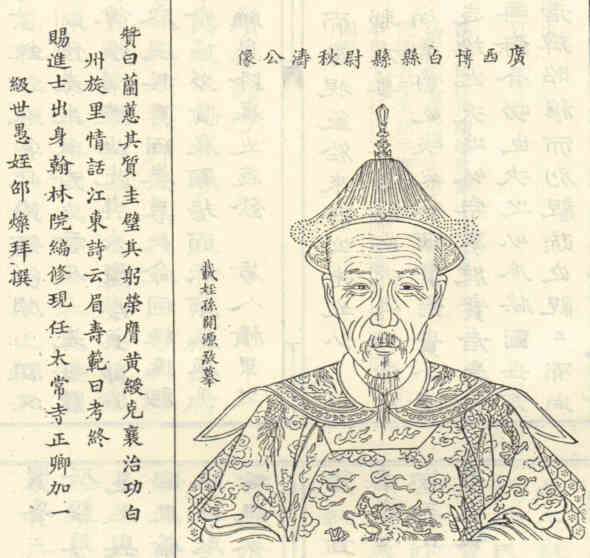 廣西博白縣縣尉秋濤公像
裁姪孫開源敬摹
贊曰蘭蕙其質圭璧其躬榮膺黃綬克襄治功白
州旋里情話江東詩云眉壽範曰考終
賜進士出身翰林院編修現任太常寺正卿加一
級世愚姪邵燦拜撰